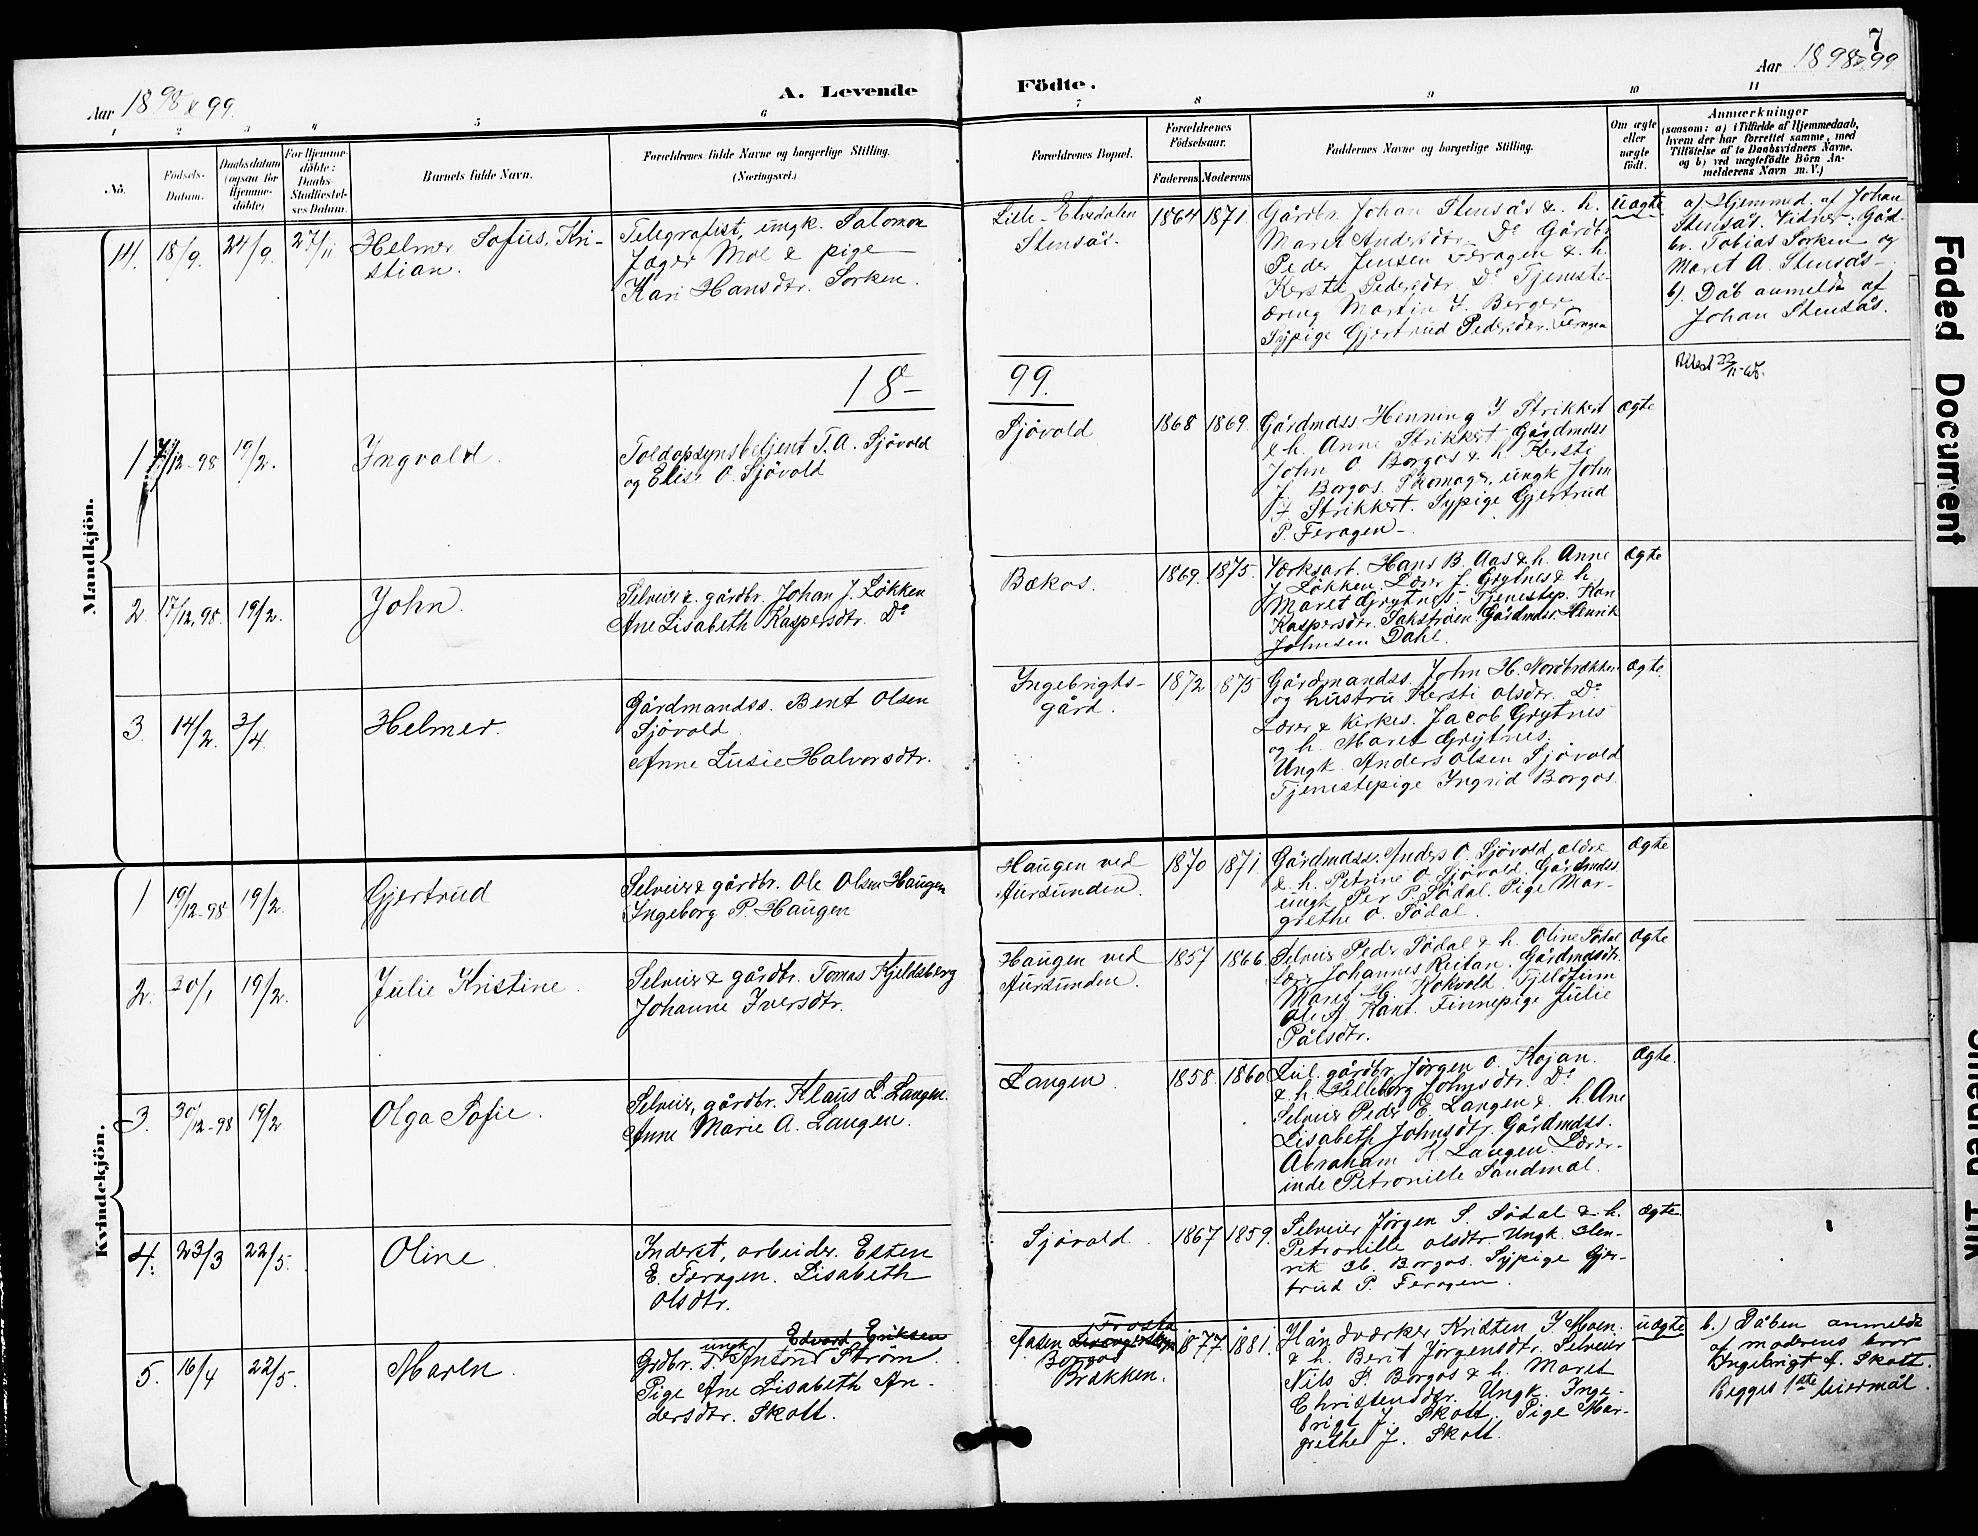 7
Aar 1898 & 99.
A. Levende
Födte.
Aar 1898 & 99
1 2 3 4 5 6 7 8 9 10 11
No.
Födsels-
Datum.
Daabsdatum
(ogsaa for
Hjemme-
döbte)
For Hjemme-
döbte:
Daabs-
Stadfæstel-
ses Datum.
Barnets fulde Navn.
Forældrenes fulde Navne og borgerlige Stilling.
(Næringsvei.)
Forældrenes Bopæl.
Forældrenes
Födselsaar.
Faderens Moderens
Faddernes Navne og borgerlige Stilling.
Om ægte
eller
uægte
födt.
Anmærkninger
(saasom: a) i Tilfælde af Hjemmedaab,
hvem der har forrettet samme, med
Tilföielse af to Daabsvidners Navne.
og b) ved uægtefödte Börn An-
melderens Navn m. V.)
Mandkjön.
14. 18/9. 24/9. 27/11
Helmer Sofus Kri-
stian.
Telegrafist, ungk. Salomon
Jæger Moe & pige
Kari Hansdtr. Sorken.
Lille-Elvedalen
Stensås.
1864 1871
Gårdbr. Johan Stensås & h.
Maret Andersdtr. Do Gårdbr.
Peder Jensen Feragen & h.
Kersti Pedersdtr. Do Tjeneste-
dreng Martin J. Berger
Sypige Gjertrud Pedersdtr. Feragen
uægte
a) Hjemmed. af Johan
Stensås. Vidner: Gård-
br. Tobias Sorken og
Maret A. Stensås-
b). Dåb anmeldt af
Johan Stensås.
Attest 22/11-
18-
99.
1 12-98 19/2.
Ingvald.
Toldopsynsbetjent T. A. Sjövold
og Elise O. Sjövold
Sjövold
1868 1869.
Gårdmdss Henning J Strikkert
& h. Anne Strikkert Gårdmdss
John O Borgos & h Kersti
J. Borgos. Skomager, ungk John
J. Strikkert. Sypige Gjertrud
P. Feragen-
ægte
2 17/12, 98. 19/2.
John.
Selveier & gårdbr. Johan J. Løkken
Ane Lisabeth Kaspersdtr. Do
Bækos.
1869. 1875.
Værksarb. Hans B. Aas & h. Anne
J Løkken Lærer J. Grytnes & h.
Maret Grytnes. Tjenestep. Kari
Kaspersdtr. Gårdmdss. Henrik
Johnsen Dahl.
ægte
3. 14/2. 3/4.
Helmer.
Gårdmandss. Bent Olsen
Sjövold.
Anne Lusie Halvorsdtr.
Ingebrigts-
gård.
1872 1875
Gårdmandss. John H. Nordbrækken
og hustru Kersti Olsdtr. Do
Lærer & kirkes. Jacob Grytnes
og h. Maret Grytnes.
Ungk. Anders Olsen Sjövold
Tjenestepige Ingrid Borgos.
ægte.
Kvindekjön.
1 19/12-98 19/2.
Gjertrud
Selveier & gårdbr. Ole Olsen Haugen
Ingeborg P. Haugen
Haugen ved
Aursunden.
1870 1871
Gårdmdss. Anders O. Sjövold, ældre
& h. Petrine O. Sjövold. Gårdmdss.
ungk Per P. Södal. Pige Mar-
grethe O. Södal.
ægte
2. 30/1 19/2.
Julie Kristine.
Selveier & gårdbr. Tomas Kjeldsberg
Johanne Iversdtr.
Haugen ved
Aursunden.
1857 1866.
Selveier Peder Södal & h. Oline Södal
Lærer Johannes Reitan. Gårdmdsdtr.
Maret H. Kokvold. Fjeldfinn
Ole A. Kant. Finnepige Julie
Pålsdtr.
ægte
3. 30/12-98 19/2
Olga Sofie.
Selveier, gårdbr. Klaus L. Langen.
Anne Marie A. Langen.
Langen.
1858. 1860
gårdbr. Jörgen O. Kojan.
& h. Johnsdtr. Do
Selveier Peder E. Langen & h. Ane
Lisabeth Johnsdtr. Gårdmdss.
Abraham K. Langen. Lærer-
inde Petronille Sandmæl.
ægte.
4. 23/3 22/5.
Oline
Inderst, arbeider. Esten
E. Feragen. Lisabeth
Olsdtr.
Sjövold.
1867 1859.
Selveier Jörgen S. Södal & h.
Petronille Olsdtr. Ungk. Hen-
rik H. Borgos. Sypige Gjer-
trud P. Feragen.
ægte.
5. 16/4 22/5.
Maren
ungk Edvard Eriksen
Grdbr. Anton Ström.
Pige Ane Lisabeth An-
dersdtr. Skott.
Aasen
Borgos
Brækken.
1877 1881.
Håndværker Kristen J. Moen.
& h. Berit Jörgensdtr. Selveier
Nils P. Borgos & h. Maret
Christensdtr. Ungk. Inge-
brigt J. Skott. Pige Mar-
grethe J. Skott.
uægte
b.) Dåben anmeldt
af moderens bror
Ingebrigt J. Skott.
Begges 1ste leiermål.
Faded Document